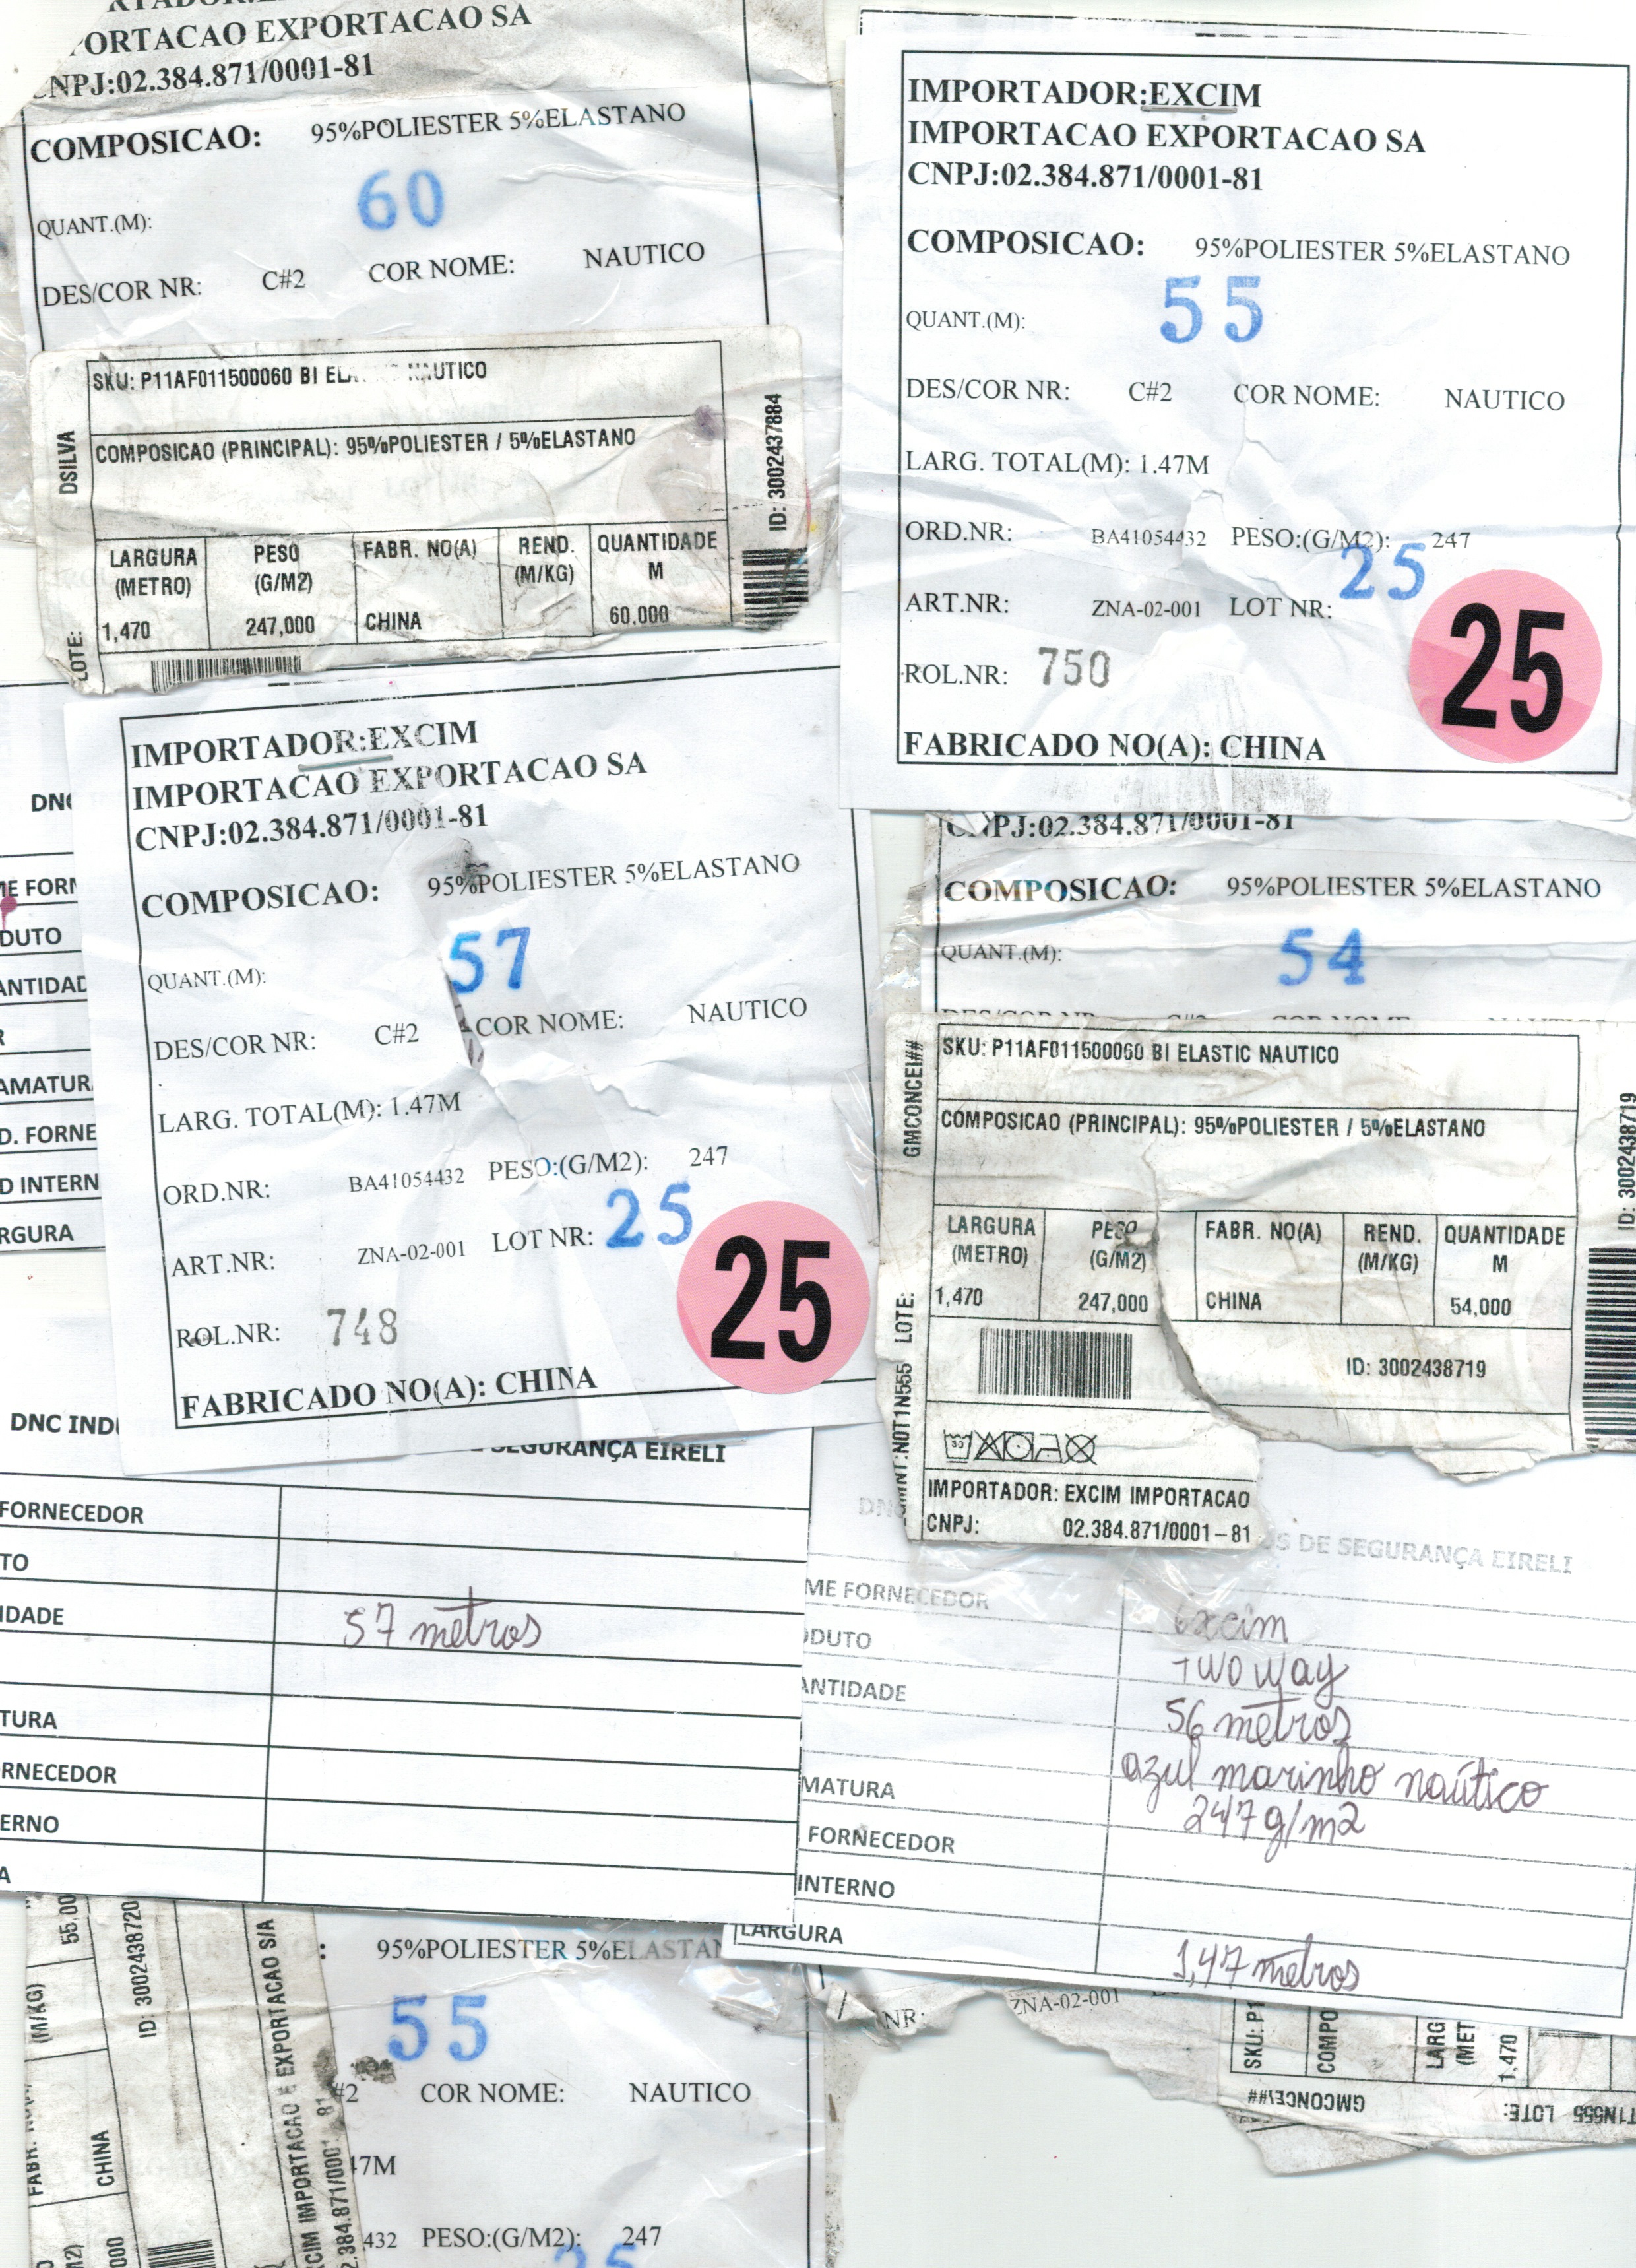 PORTACAO EXPORTACAO SA
CNPJ:02.384.871/0001-81
COMPOSICAO: 95%POLIESTER 5%ELASTANO
QUANT.(M): 60
DES/COR NR: C#2 COR NOME: NAUTICO
SKU: P11AF011500060 BI NAUTICO
COMPOSICAO (PRINCIPAL): 95%POLIESTER / 5%ELASTANO
LARGURA (METRO) PESO (G/M2) FABR. NO(A) REND. (M/KG) QUANTIDADE M
1,470 247,000 CHINA 60,000
DSILVA
LOTE:
ID: 3002437884
IMPORTADOR:EXCIM
IMPORTACAO EXPORTACAO SA
CNPJ:02.384.871/0001-81
COMPOSICAO: 95%POLIESTER 5%ELASTANO
QUANT.(M): 55
DES/COR NR: C#2 COR NOME: NAUTICO
LARG. TOTAL(M): 1.47M
ORD.NR: BA41054432 PESO:(G/M2): 247
ART.NR: ZNA-02-001 LOT NR: 25
25
ROL.NR: 750
FABRICADO NO(A): CHINA
DNC
FORN
DUTO
ANTIDAD
AMATUR
D. FORNE
D INTERN
RGURA
IMPORTADOR:EXCIM
IMPORTACAO EXPORTACAO SA
CNPJ:02.384.871/0001-81
COMPOSICAO: 95%POLIESTER 5%ELASTANO
QUANT.(M): 57
DES/COR NR: C#2 COR NOME: NAUTICO
LARG. TOTAL(M): 1.47M
ORD.NR: BA41054432 PESO:(G/M2): 247
ART.NR: ZNA-02-001 LOT NR: 25
25
ROL.NR: 748
FABRICADO NO(A): CHINA
CNPJ:02.384.871/0001-81
COMPOSICAO: 95%POLIESTER 5%ELASTANO
QUANT.(M): 54
SKU: P11AF011500060 BI ELASTIC NAUTICO
COMPOSICAO (PRINCIPAL): 95%POLIESTER / 5%ELASTANO
LARGURA (METRO) PESO (G/M2) FABR. NO(A) REND. (M/KG) QUANTIDADE M
1,470 247,000 CHINA 54,000
ID: 3002438719
IMPORTADOR: EXCIM IMPORTACAO
CNPJ: 02.384.871/0001-81
GMCONCEI##
LOTE:
NOT1N555
ID: 3002438719
DNC INDU SEGURANÇA EIRELI
FORNECEDOR
TO
IDADE 57 metros
TURA
RNECEDOR
ERNO
A
DE SEGURANÇA EIRELI
ME FORNECEDOR excim
DUTO Two way
ANTIDADE 56 metros
azul marinho naútico
MATURA 247 g/m2
FORNECEDOR
INTERNO
LARGURA 1,47 metros
55,00
(M/KG)
CHINA
ID: 3002438720
EXCIM IMPORTACAO E EXPORTACAO S/A
02.384.871/0001 81
: 95%POLIESTER 5%ELASTAN
55
#2 COR NOME: NAUTICO
47M
432 PESO:(G/M2): 247
25
NR: ZNA-02-001
SKU: P1
COMPO
LARG
(MET
1,470
GMCONCEI##
LOTE:
T1N555